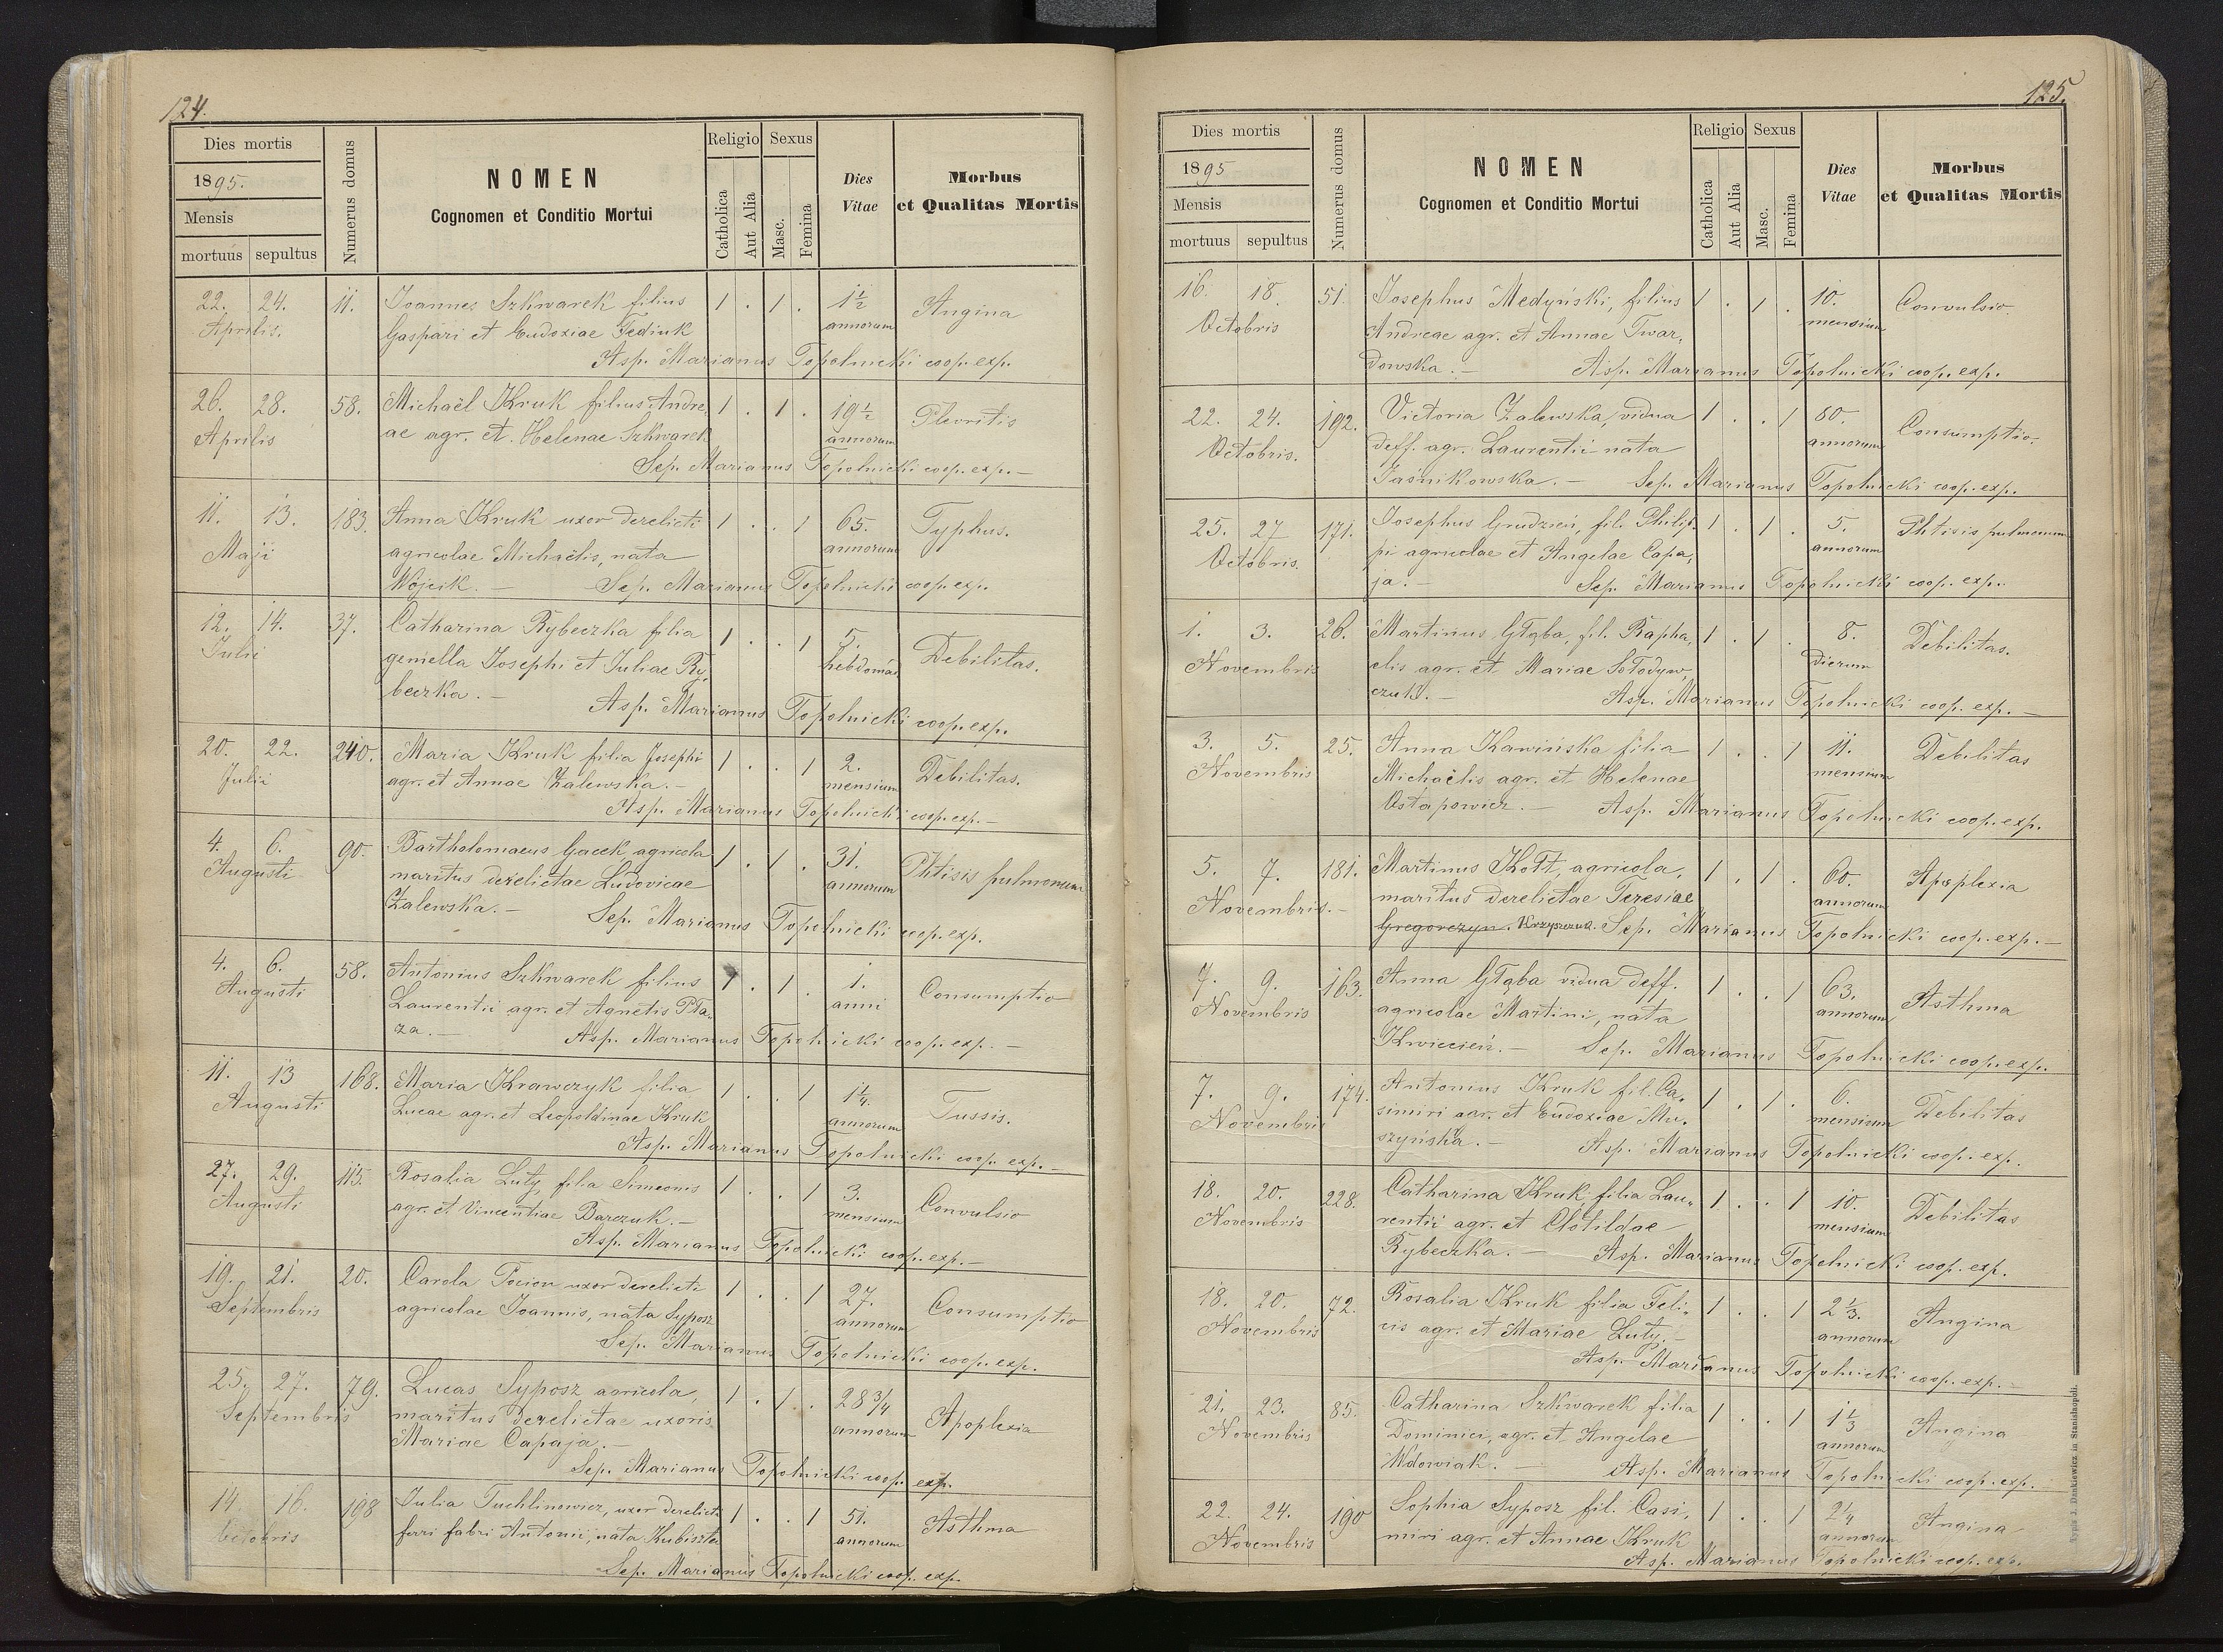 124.
Dies mortis
1895.
Mensis
mortuus sepultus
Numerus domus
NOMEN
Cognomen et Conditio Mortui
Religio
Catholica
Aut Alia
Sexus
Masc.
Femina
Dies
Vitae
Morbus
et Qualitas Mortis
22. 24. 11. Joannes Szkwarek filius 1 . 1 . 1½ Angina
Aprilis. Gaspari et Eudoxiae Fediuk annorum
Asp. Marianus Topolnicki coop. exp.
26. 28. 58. Michaël Kruk filius Andre, 1 . 1 . 19½ Plevritis
Aprilis ae agr. et. Helenae Szkwarek annorum
Sep. Marianus Topolnicki coop. exp. —
11. 13. 183. Anna Kruk uxor derelicti 1 . . 1 65. Typhus.
Maji agricolae Michaëlis, nata annorum
Wójcik. — Sep. Marianus Topolnicki coop. exp.
12. 14. 37. Catharina Rybeczka filia 1 . . 1 5. Debilitas.
Julii gemella Josephi et Juliae Ry, hebdomad
beczka. — Asp. Marianus Topolnicki coop. exp.
20. 22. 240. Maria Kruk filia Josephi 1 . . 1 2. Debilitas.
Julii agr. et Annae Zalewska. — mensium
Asp. Marianus Topolnicki coop. exp. —
4. 6. 90. Bartholomaeus Gacek agricola 1 . 1 . 31. Phtisis pulmonum
Augusti maritus derelictae Ludovicae annorum
Zalewska. — Sep. Marianus Topolnicki coop. exp.
4. 6. 58. Antonius Szkwarek filius 1 . 1 . 1. Consumptio
Augusti Laurentii agr. et Agnetis Pła,
za. — anni
Asp. Marianus Topolnicki coop. exp. —
11. 13 168. Maria Krawczyk filia 1 . . 1 1¼. Tussis.
Augusti Lucae agr. et Leopoldinae Kruk annorum
Asp. Marianus Topolnicki coop. exp. —
27. 29. 115. Rosalia Luty, filia Simeonis 1 . . 1 3. Convulsio
Augusti agr. et Vincentiae Barczuk. — mensium
Asp. Marianus Topolnicki coop. exp. —
19. 21. 20. Carola Pocion uxor derelicti 1 . . 1 27. Consumptio
Septembris agricolae Joannis, nata Syposz annorum
Sep. Marianus Topolnicki coop. exp.
25. 27. 79. Lucas Syposz agricola, 1 . 1 . 28¾ Apoplexia
Septembris maritus derelictae uxoris annorum
Mariae Capaja. —
Sep. Marianus Topolnicki coop. exp.
14 16. 198 Julia Tuchlinowicz, uxor derelicti 1 . . 1 51. Asthma
Octobris ferri fabri Antonii, nata Kubiszta annorum
Sep. Marianus Topolnicki coop. exp.
125.
Dies mortis
1895
Mensis
mortuus sepultus
Numerus domus
NOMEN
Cognomen et Conditio Mortui
Religio
Catholica
Aut Alia
Sexus
Masc.
Femina
Dies
Vitae
Morbus
et Qualitas Mortis
16. 18. 51. Josephus Medyński, filius 1 . 1 . 10. Convulsio.
Octobris Andreae agr. et Annae Twar, mensium
dowska. — Asp. Marianus Topolnicki coop. exp.
22. 24. 192. Victoria Zalewska, vidua 1 . . 1 80. Consumptio.
Octobris. deff. agr. Laurentii nata annorum
Jaśnikowska. — Sep. Marianus Topolnicki coop. exp.
25. 27 171. Josephus Grudzień, fil. Philip, 1 . 1 . 5. Phtisis pulmonum
Octobris. pi agricolae et Angelae Capa, annorum
ja. — Sep. Marianus Topolnicki coop. exp.
1. 3. 26. Martinus Głąba, fil. Rapha, 1 . 1 . 8. Debilitas.
Novembris elis agr. et Mariae Sołodyw, dierum
czuk. — Asp. Marianus Topolnicki coop. exp. —
3. 5. 25. Anna Kawińska filia 1 . . 1 11. Debilitas
Novembris Michaëlis agr. et Helenae mensium
Ostapowicz. — Asp. Marianus Topolnicki coop. exp.
5. 7. 181. Martinus Kott, agricola, 1 . 1 . 60. Apoplexia
Novembris. — maritus derelictae Teresiae annorum
Gregorczyn. Krzyszczuk. Sep. Marianus Topolnicki coop. exp. —
7. 9. 163. Anna Głąba vidua deff. 1 . . 1 63. Asthma
Novembris agricolae Martini, nata annorum
Kwiecień. — Sep. Marianus Topolnicki coop. exp.
7. 9. 174. Antonius Kruk fil. Ca, 1 . 1 . 6. Debilitas
Novembris simiri agr. et Eudoxiae Mu, mensium
szyńska. — Asp. Marianus Topolnicki coop. exp.
18. 20. 228. Catharina Kruk filia Lau, 1 . . 1 10. Debilitas
Novembris rentii agr. et Clotildae mensium
Rybeczka. — Asp. Marianus Topolnicki coop. exp.
18. 20. 72. Rosalia Kruk filia Feli, 1 . . 1 2⅓. Angina
Novembris cis agr. et Mariae Luty. — annorum
Asp. Marianus Topolnicki coop. exp. —
21. 23. 85. Catharina Szkwarek filia 1 . . 1 1⅓ Angina
Novembris Dominici, agr. et Angelae annorum
Wdowiak. — Asp. Marianus Topolnicki coop. exp.
22. 24. 190 Sophia Syposz fil. Casi, 1 . . 1 2¼ Angina
Novembris miri agr. et Annae Kruk annorum
Asp. Marianus Topolnicki coop. exp.
Typis J. Dankiewicz in Stanislaopoli.